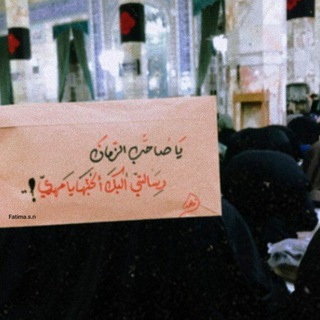 يَا صَاحِبَ الزَّمَان
رِسَالَتِي إِلَيكَ أَكتُبُهَا يَا مَهدِيّ !..
Fatima.s.n